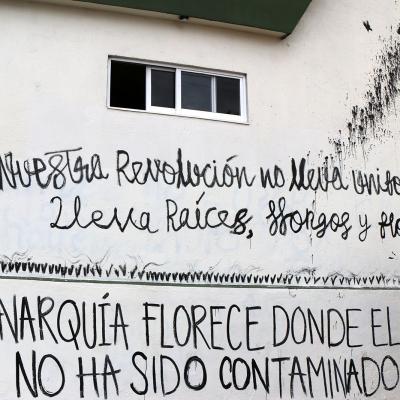 Nuestra Revolución no lleva unifo
lleva Raíces, Hongos y flo
NARQUÍA FLORECE DONDE EL
NO HA SIDO CONTAMINADO